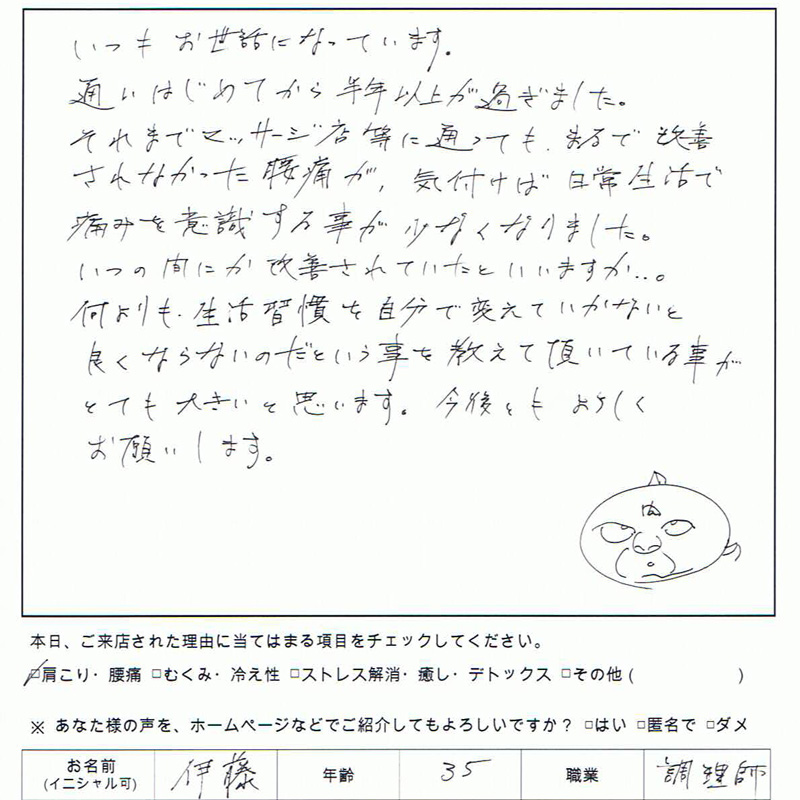 いつもお世話になっています。
通いはじめてから半年以上が過ぎました。
それまでマッサージ店等に通っても、まるで改善
されなかった腰痛が、気付けば日常生活で
痛みを意識する事が少なくなりました。
いつの間にか改善されていたといいますか…。
何よりも、生活習慣を自分で変えていかないと
良くならないのだという事を教えて頂いている事が
とても大きいと思います。今後ともよろしく
お願いします。
肉
本日、ご来店された理由に当てはまる項目をチェックしてください。
☑肩こり・腰痛 □むくみ・冷え性 □ストレス解消・癒し・デトックス □その他( )
※ あなた様の声を、ホームページなどでご紹介してもよろしいですか？ □はい □匿名で □ダメ
お名前 (イニシャル可) 伊藤 年齢 35 職業 調理師